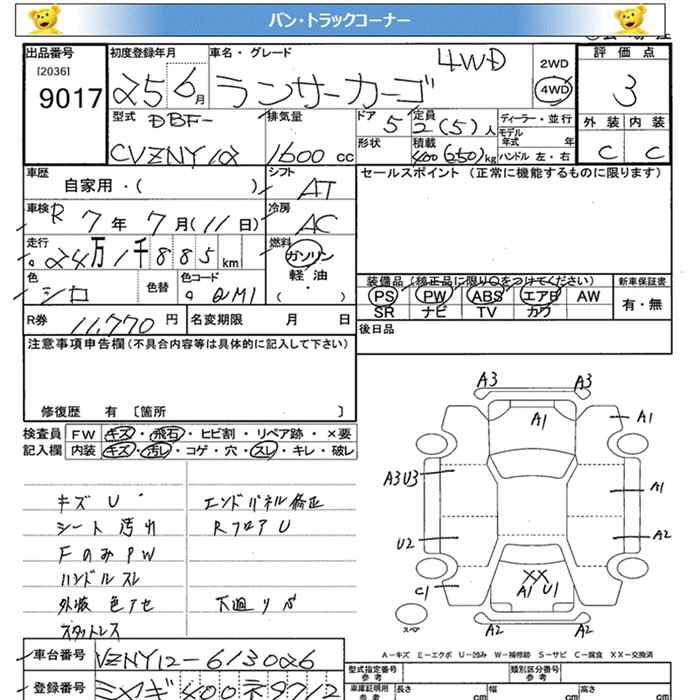 バン・トラックコーナー
出品番号 [2036] 9017
初度登録年月 25 6月
車名・グレード ランサーカーゴ 4WD
2WD 4WD
評価点 3
型式 DBF- CVZNY12
排気量 1600 cc
ドア 5 定員 2(5)人
形状 積載 400(250)kg
ディーラー・並行
モデル年式 年
ハンドル 左・右
外装 内装
C C
車歴 自家用・( )
シフト AT
セールスポイント (正常に機能するものに限ります)
車検 R7年7月(11日)
冷房 AC
走行 24万1千885km
燃料 ガソリン 軽油 ・ ( )
色 シロ 色替 色コード QM1
装備品 (検正品に限り○をつけてください) 新車保証書
PS PW ABS エアB AW 有・無
SR ナビ TV カワ
R券 11,770円 名変期限 月 日
後日品
注意事項申告欄 (不具合内容等は具体的に記入して下さい)
修復歴 有 〔箇所 〕
検査員 FW キズ・飛石・ヒビ割・リペア跡・×要
記入欄 内装 キズ・汚レ・コゲ・穴・スレ・キレ・破レ
キズ U エンドパネル修正
シート 汚れ Rフロア U
FのみPW
ハンドルスレ
外装 色アセ 下廻りサ
スタットレス
A3 A3
A1 A1
A3U3 A1
U2 A2
XX
C1 A1 U1
スペア A2 A2
A-キズ E-エクボ U-凹み W-補修跡 S-サビ C-腐食 XX-交換済
車台番号 VZNY12-613026
型式指定番号 参考 類別区分番号 参考
登録番号 ミヤギ400ネ9712
車庫証明用 参考 長さ cm 幅 cm 高さ cm